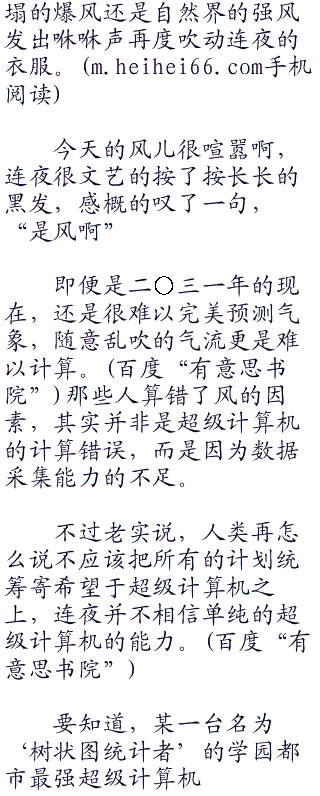 塌的爆风还是自然界的强风
发出咻咻声再度吹动连夜的
衣服。(m.heihei66.com手机
阅读)
今天的风儿很喧嚣啊，
连夜很文艺的按了按长长的
黑发，感概的叹了一句，
“是风啊”
即便是二〇三一年的现
在，还是很难以完美预测气
象，随意乱吹的气流更是难
以计算。(百度“有意思书
院”)那些人算错了风的因
素，其实并非是超级计算机
的计算错误，而是因为数据
采集能力的不足。
不过老实说，人类再怎
么说不应该把所有的计划统
筹寄希望于超级计算机之
上，连夜并不相信单纯的超
级计算机的能力。(百度“有
意思书院”)
要知道，某一台名为
‘树状图统计者’的学园都
市最强超级计算机